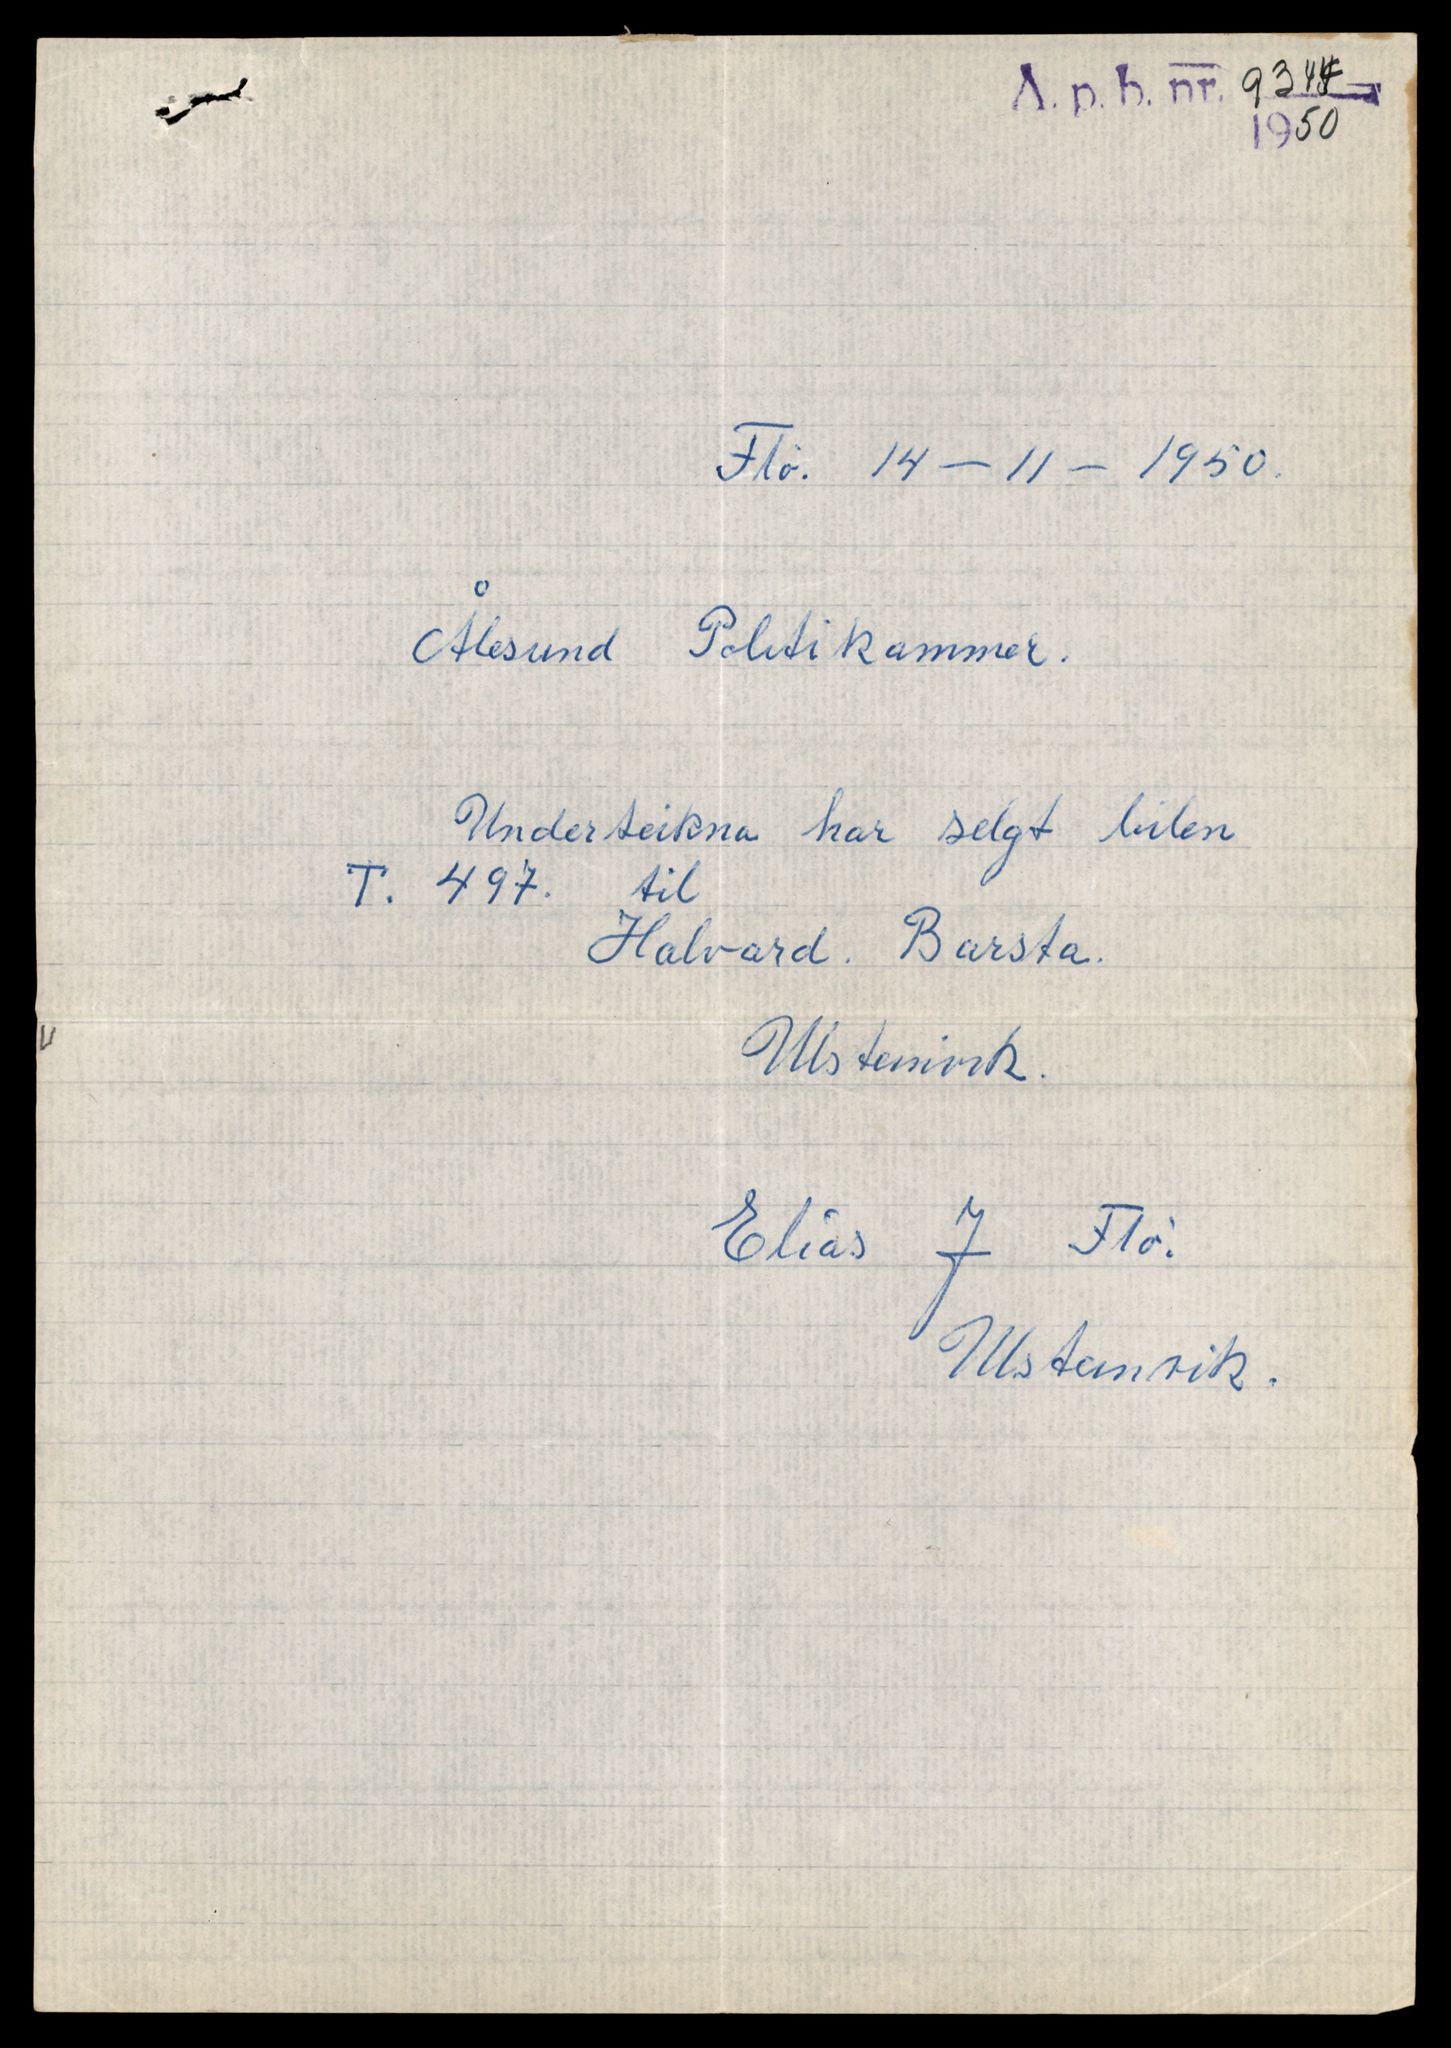 A. p. k. nr.
1950
Flö. 14 - 11 - 1950.
Ålesund Politikammer.
Underteikna har selgt bilen
T. 497. til
Halvard. Barsta.
Ulsteinvik.
Elias J Flö.
Ulsteinvik.